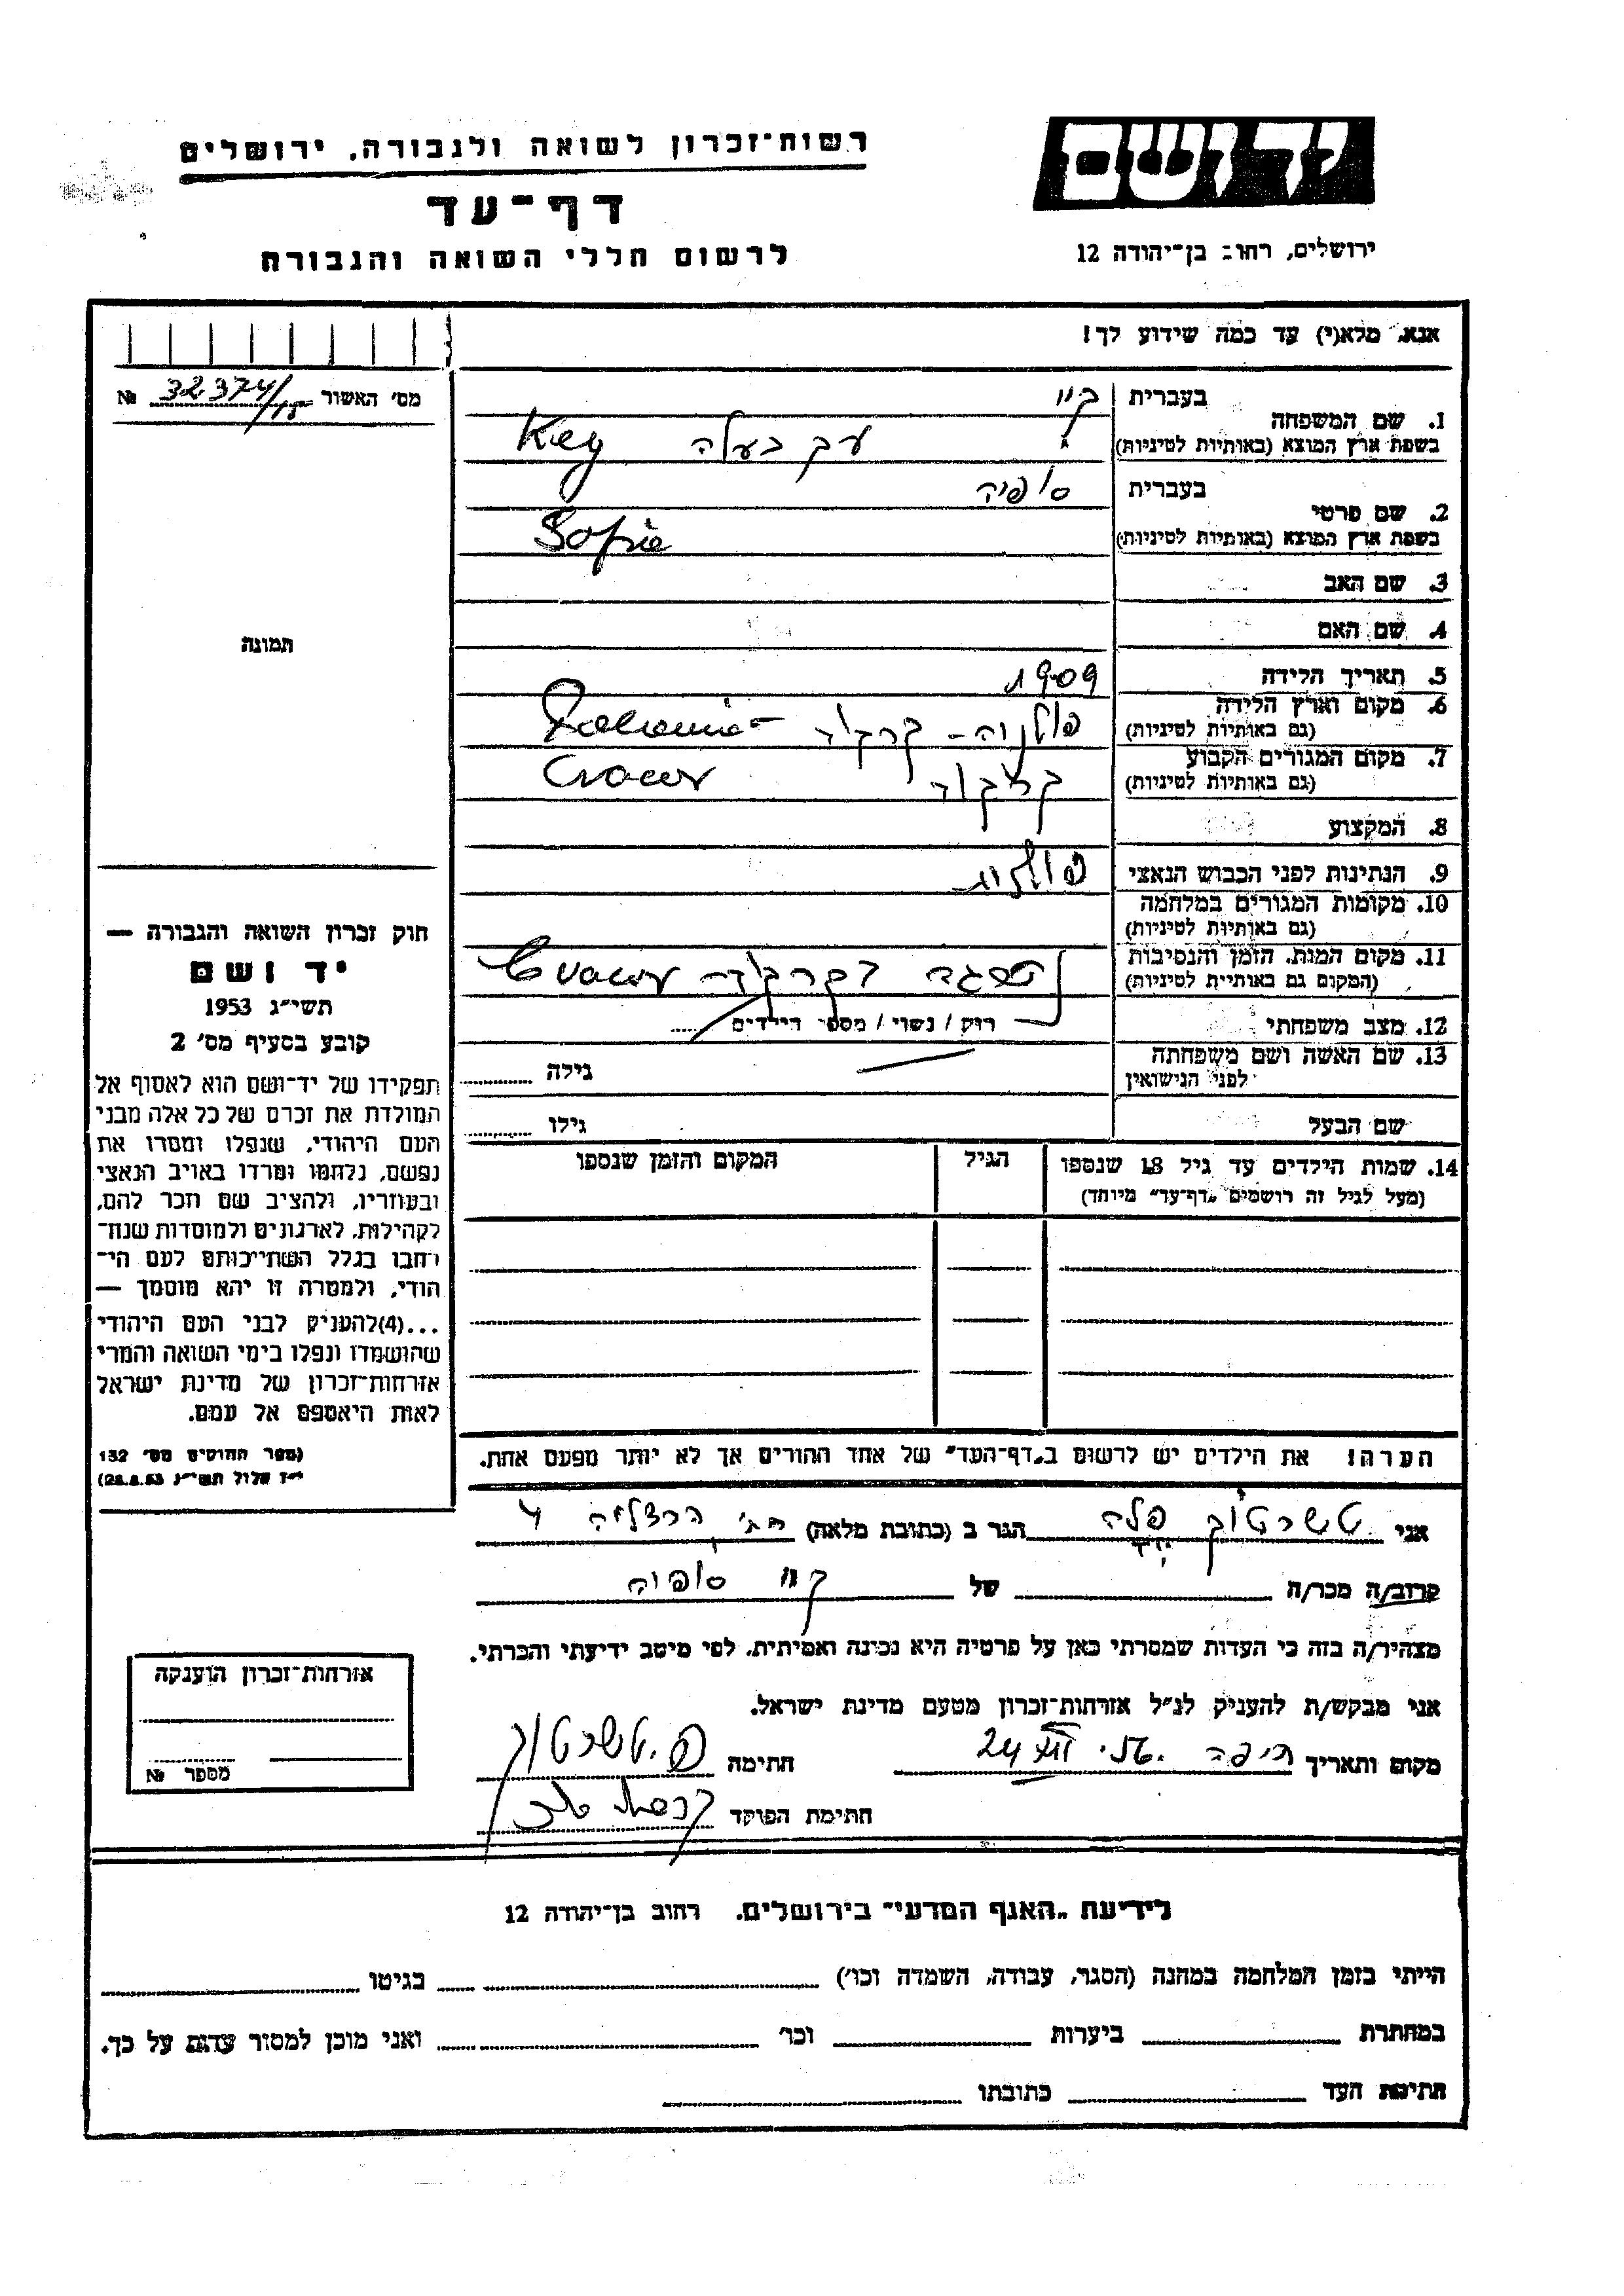 יד ושם
ירושלים, רחוב בן־יהודה 12
רשות־זכרון לשואה ולגבורה, ירושלים
דף־עד
לרשום חללי השואה והגבורה
אנא, מלא(י) עד כמה שידוע לך!
1. שם המשפחה
בעברית קיי
בשפת ארץ המוצא (באותיות לטיניות) בעלה Key
2. שם פרטי
בעברית סופיה
בשפת ארץ המוצא (באותיות לטיניות) Sofie
3. שם האב
4. שם האם
5. תאריך הלידה 1909
6. מקום וארץ הלידה
(גם באותיות לטיניות) פולניה - קרקוב
7. מקום המגורים הקבוע
(גם באותיות לטיניות) קרקוב Cracow
8. המקצוע
9. הנתינות לפני הכבוש הנאצי פולנית
10. מקומות המגורים במלחמה
(גם באותיות לטיניות)
11. מקום המות, הזמן והנסיבות
(המקום גם באותיות לטיניות) Cracow
12. מצב משפחתי רווק / נשוי / מספר הילדים
13. שם האשה ושם משפחתה
לפני הנישואין גילה
שם הבעל גילו
14. שמות הילדים עד גיל 18 שנספו
(מעל לגיל זה רושמים „דף־עד" מיוחד)
הגיל
המקום והזמן שנספו
הערה! את הילדים יש לרשום ב„דף־העד" של אחד ההורים אך לא יותר מפעם אחת.
מס' האשור № 32374/15
תמונה
חוק זכרון השואה והגבורה —
יד ושם
תשי"ג 1953
קובע בסעיף מס' 2
תפקידו של יד־ושם הוא לאסוף אל
המולדת את זכרם של כל אלה מבני
העם היהודי, שנפלו ומסרו את
נפשם, נלחמו ומרדו באויב הנאצי
ובעוזריו, ולהציב שם וזכר להם,
לקהילות, לארגונים ולמוסדות שנח־
רחבו בגלל השתייכותם לעם הי־
הודי, ולמטרה זו יהא מוסמך —
...(4)להעניק לבני העם היהודי
שהושמדו ונפלו בימי השואה והמרי
אזרחות־זכרון של מדינת ישראל
לאות היאספם אל עמם.
(ספר החוקים מס' 132
י"ז אלול תשי"ג 28.8.53)
אני הגר ב (כתובת מלאה) הרצליה 4
קרוב/ה מכר/ה של קיי סופיה
מצהיר/ה בזה כי העדות שמסרתי כאן על פרטיה היא נכונה ואמיתית, לפי מיטב ידיעתי והכרתי.
אני מבקש/ת להעניק לנ"ל אזרחות־זכרון מטעם מדינת ישראל.
מקום ותאריך חיפה 24 חתימה
חתימת הפוקד
אזרחות־זכרון הוענקה
מספר №
לידיעת „האגף המדעי" בירושלים, רחוב בן־יהודה 12
הייתי בזמן המלחמה במחנה (הסגר, עבודה, השמדה וכו') בגיטו
במחתרת ביערות וכו' ואני מוכן למסור עדות על כך.
חתימת העד כתובתו